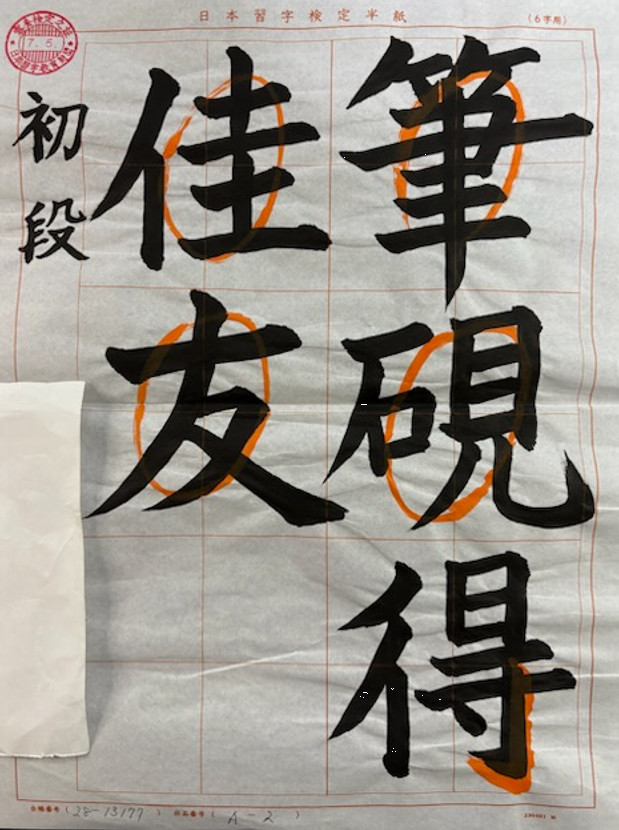 日本習字検定半紙
(6字用)
筆硯得
佳友
初段
7. 5.
(28-13177)
(A-2)